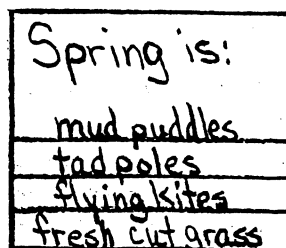 Spring is:
mud puddles
tadpoles
flying kites
fresh cut grass